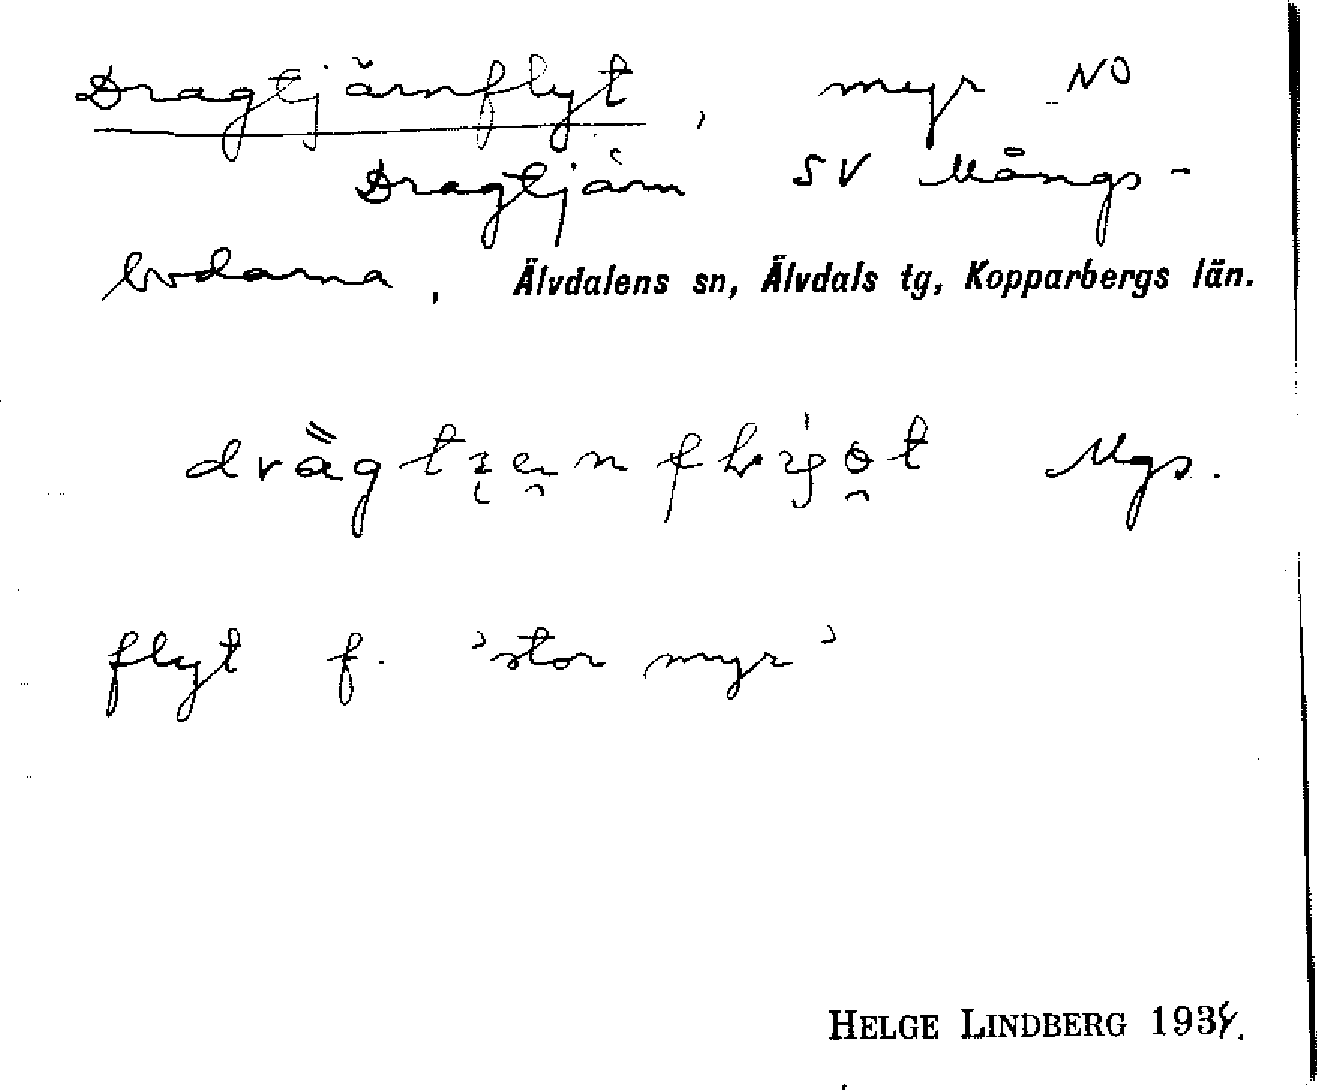 Dragtjärnflyt, myr NO
Dragtjärn SV Mångs-
bodarna, Älvdalens sn, Älvdals tg, Kopparbergs län.
Mgs.
flyt f. 'stor myr'
HELGE LINDBERG 1934.